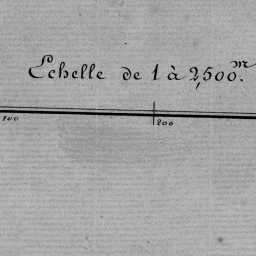 Echelle de 1 à 2,500 m.
100 200